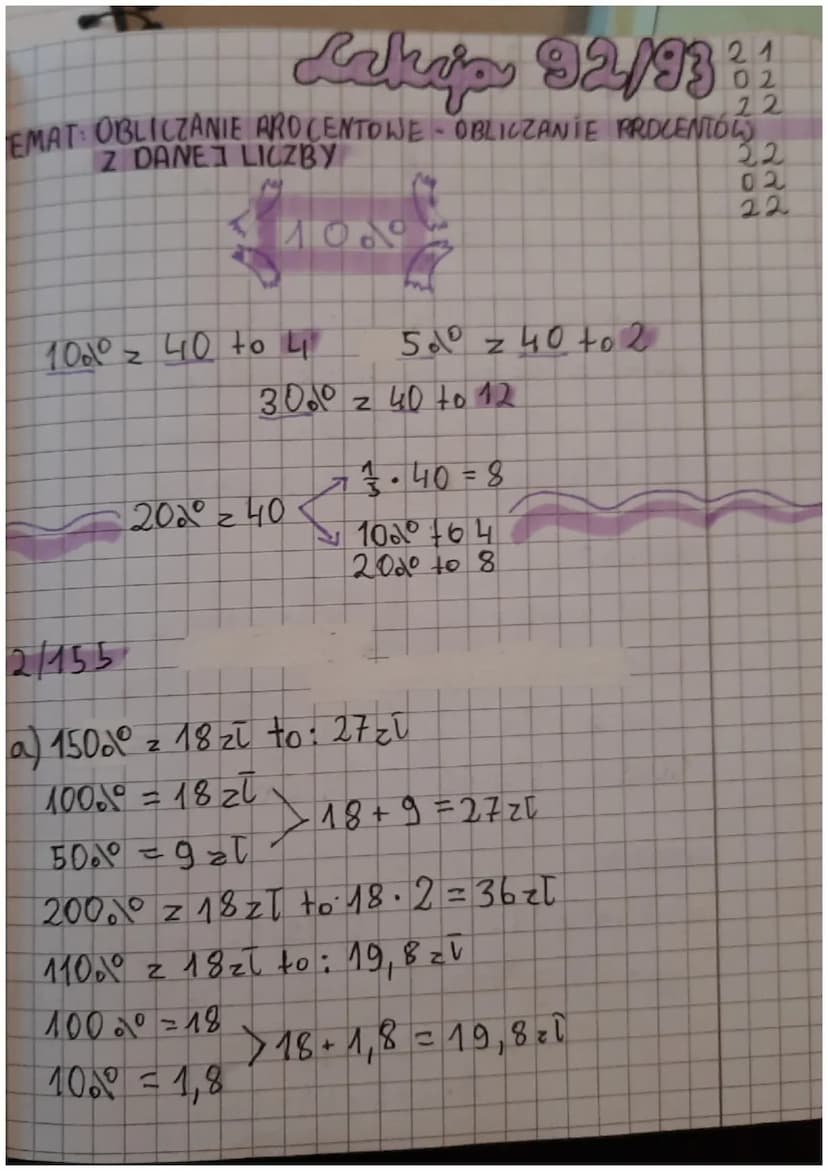 Lekcja 92/93
21
02
22
EMAT: OBLICZANIE AROCENTOWE - OBLICZANIE PROCENTÓW
Z DANEJ LICZBY
22
02
22
10%
10% z 40 to 4
5% z 40 to 2
30% z 40 to 12
20% z 40
1/5 · 40 = 8
10% to 4
20% to 8
2/155
a) 150% z 18 zł to: 27 zł
100% = 18 zł
50% = 9 zł
> 18 + 9 = 27 zł
200% z 18 zł to: 18 · 2 = 36 zł
110% z 18 zł to: 19,8 zł
100% = 18
10% = 1,8
> 18 + 1,8 = 19,8 zł